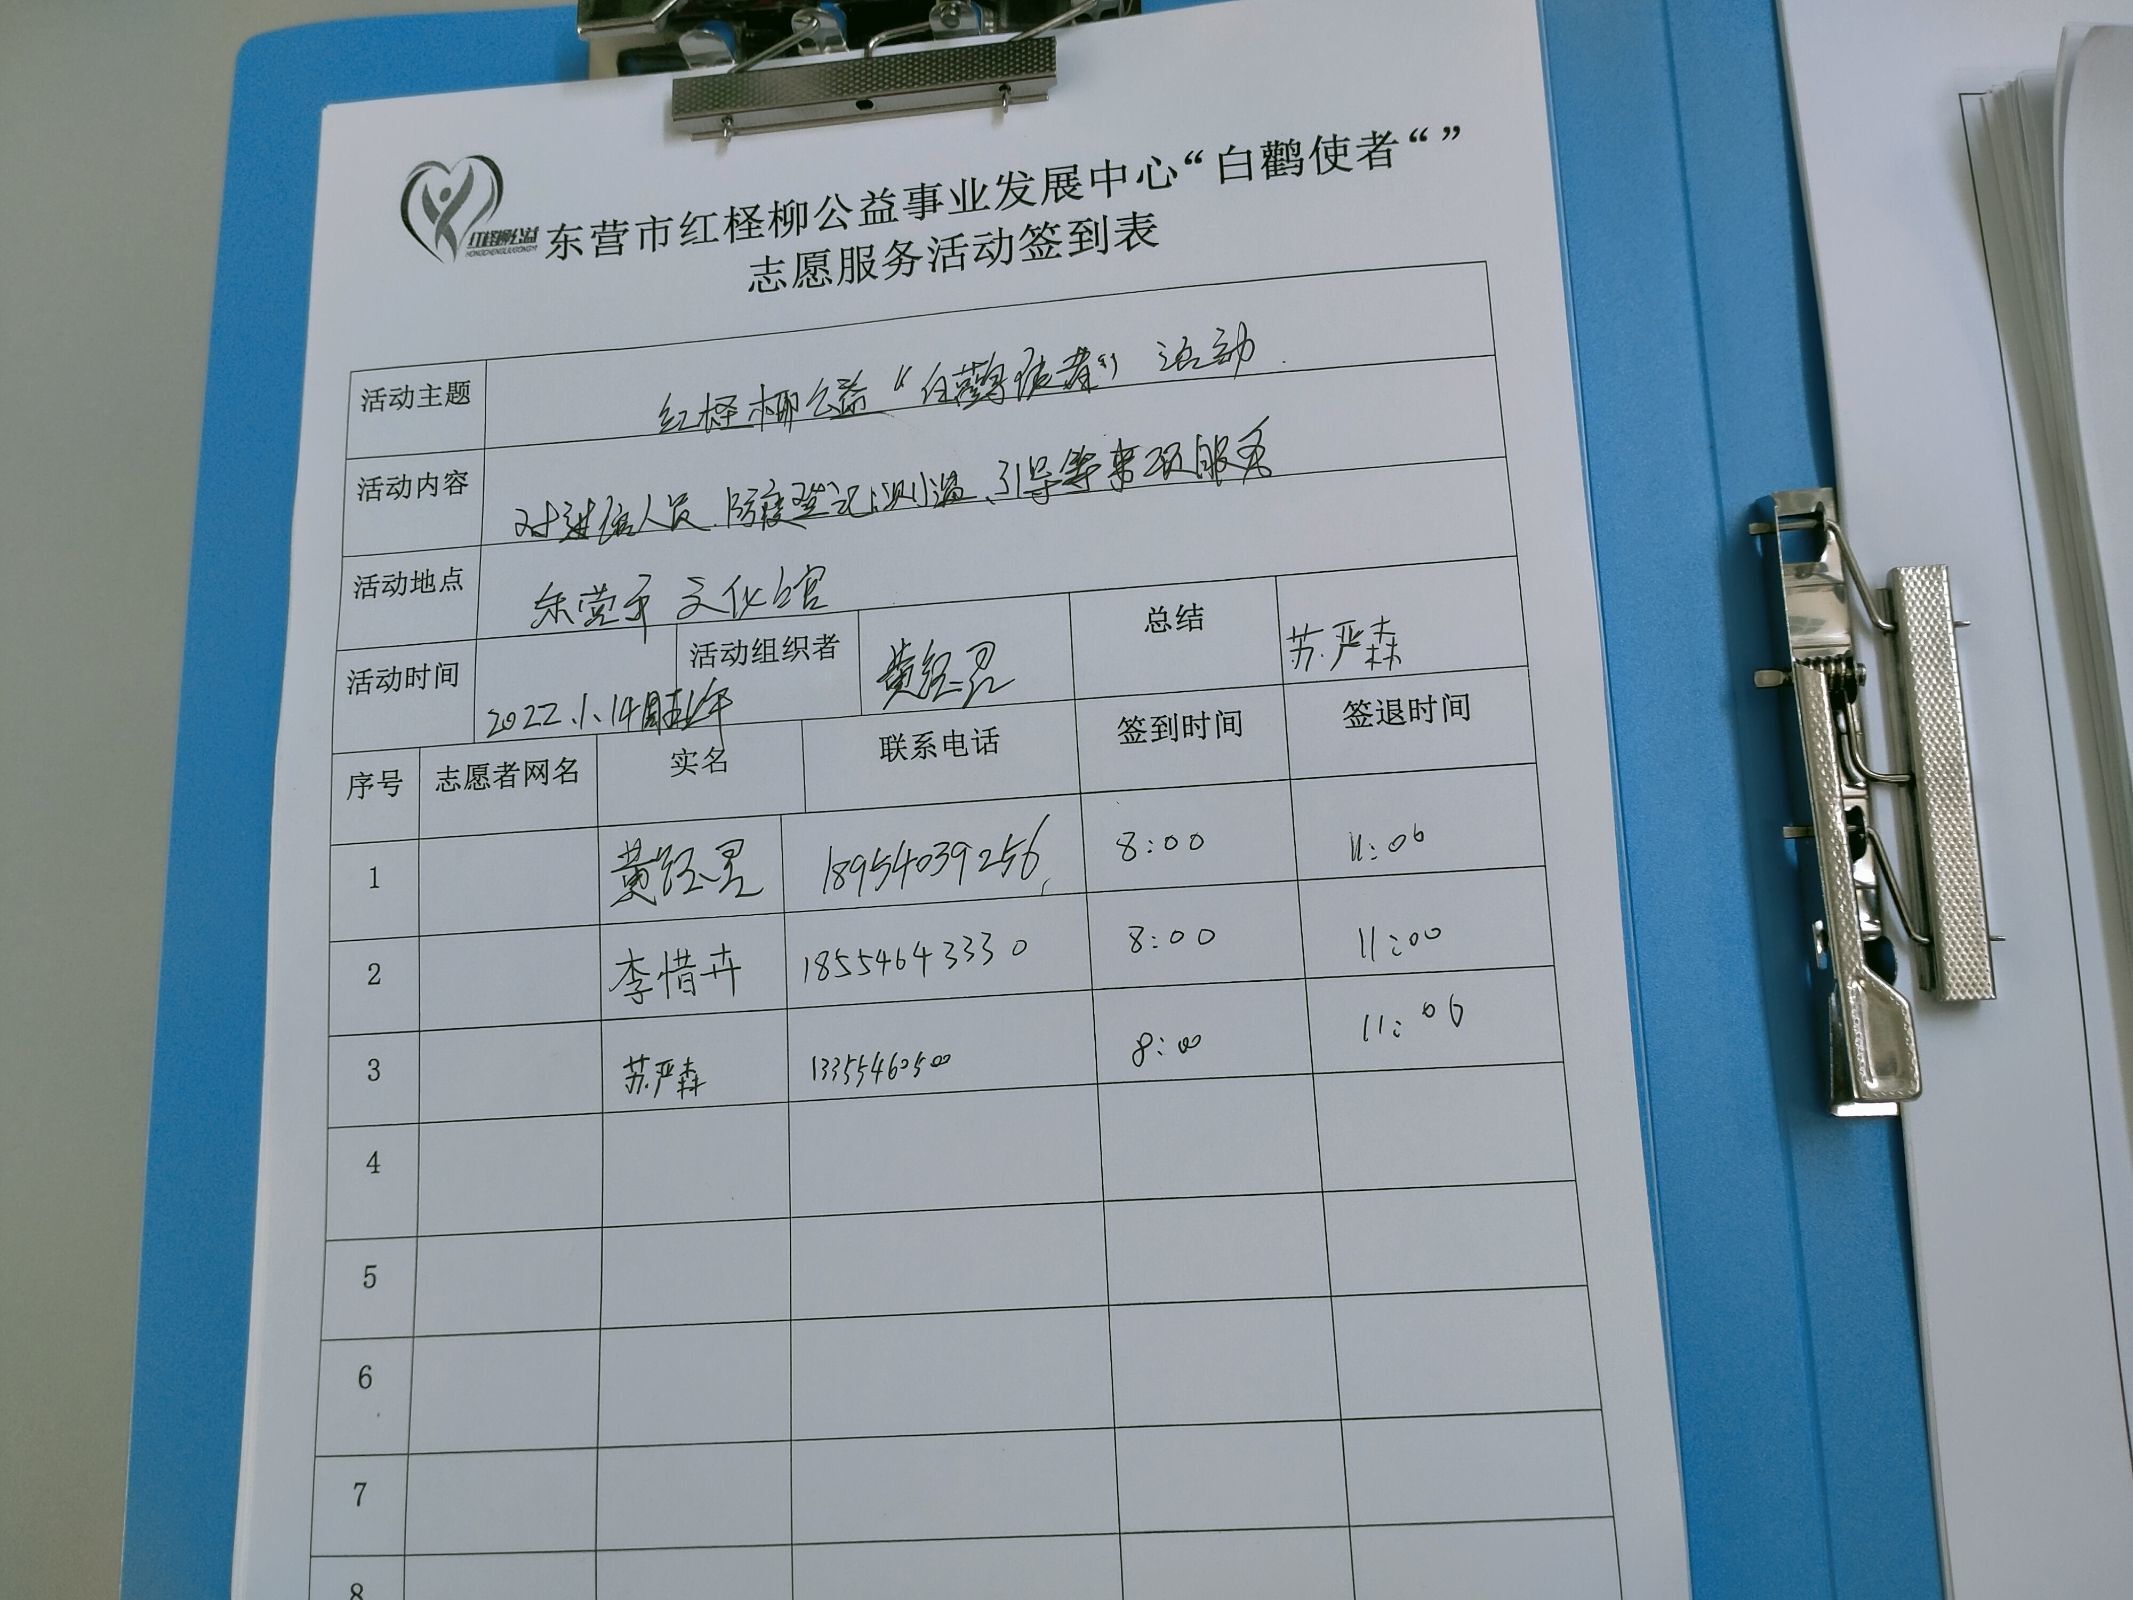 红柽柳公益
HONGCHENGLIUGONGYI
东营市红柽柳公益事业发展中心“白鹳使者“”
志愿服务活动签到表
活动主题 红柽柳公益“白鹳使者”活动.
活动内容 对进馆人员、防疫登记、测温、引导等事项服务
活动地点 东营市文化馆
活动时间 2022.1.14周五上午 活动组织者 黄经 总结 苏严森
序号 志愿者网名 实名 联系电话 签到时间 签退时间
1 黄经 18954039256 8:00 11:00
2 李惜卉 18554643330 8:00 11:00
3 苏严森 13355460500 8:00 11:00
4
5
6
7
8